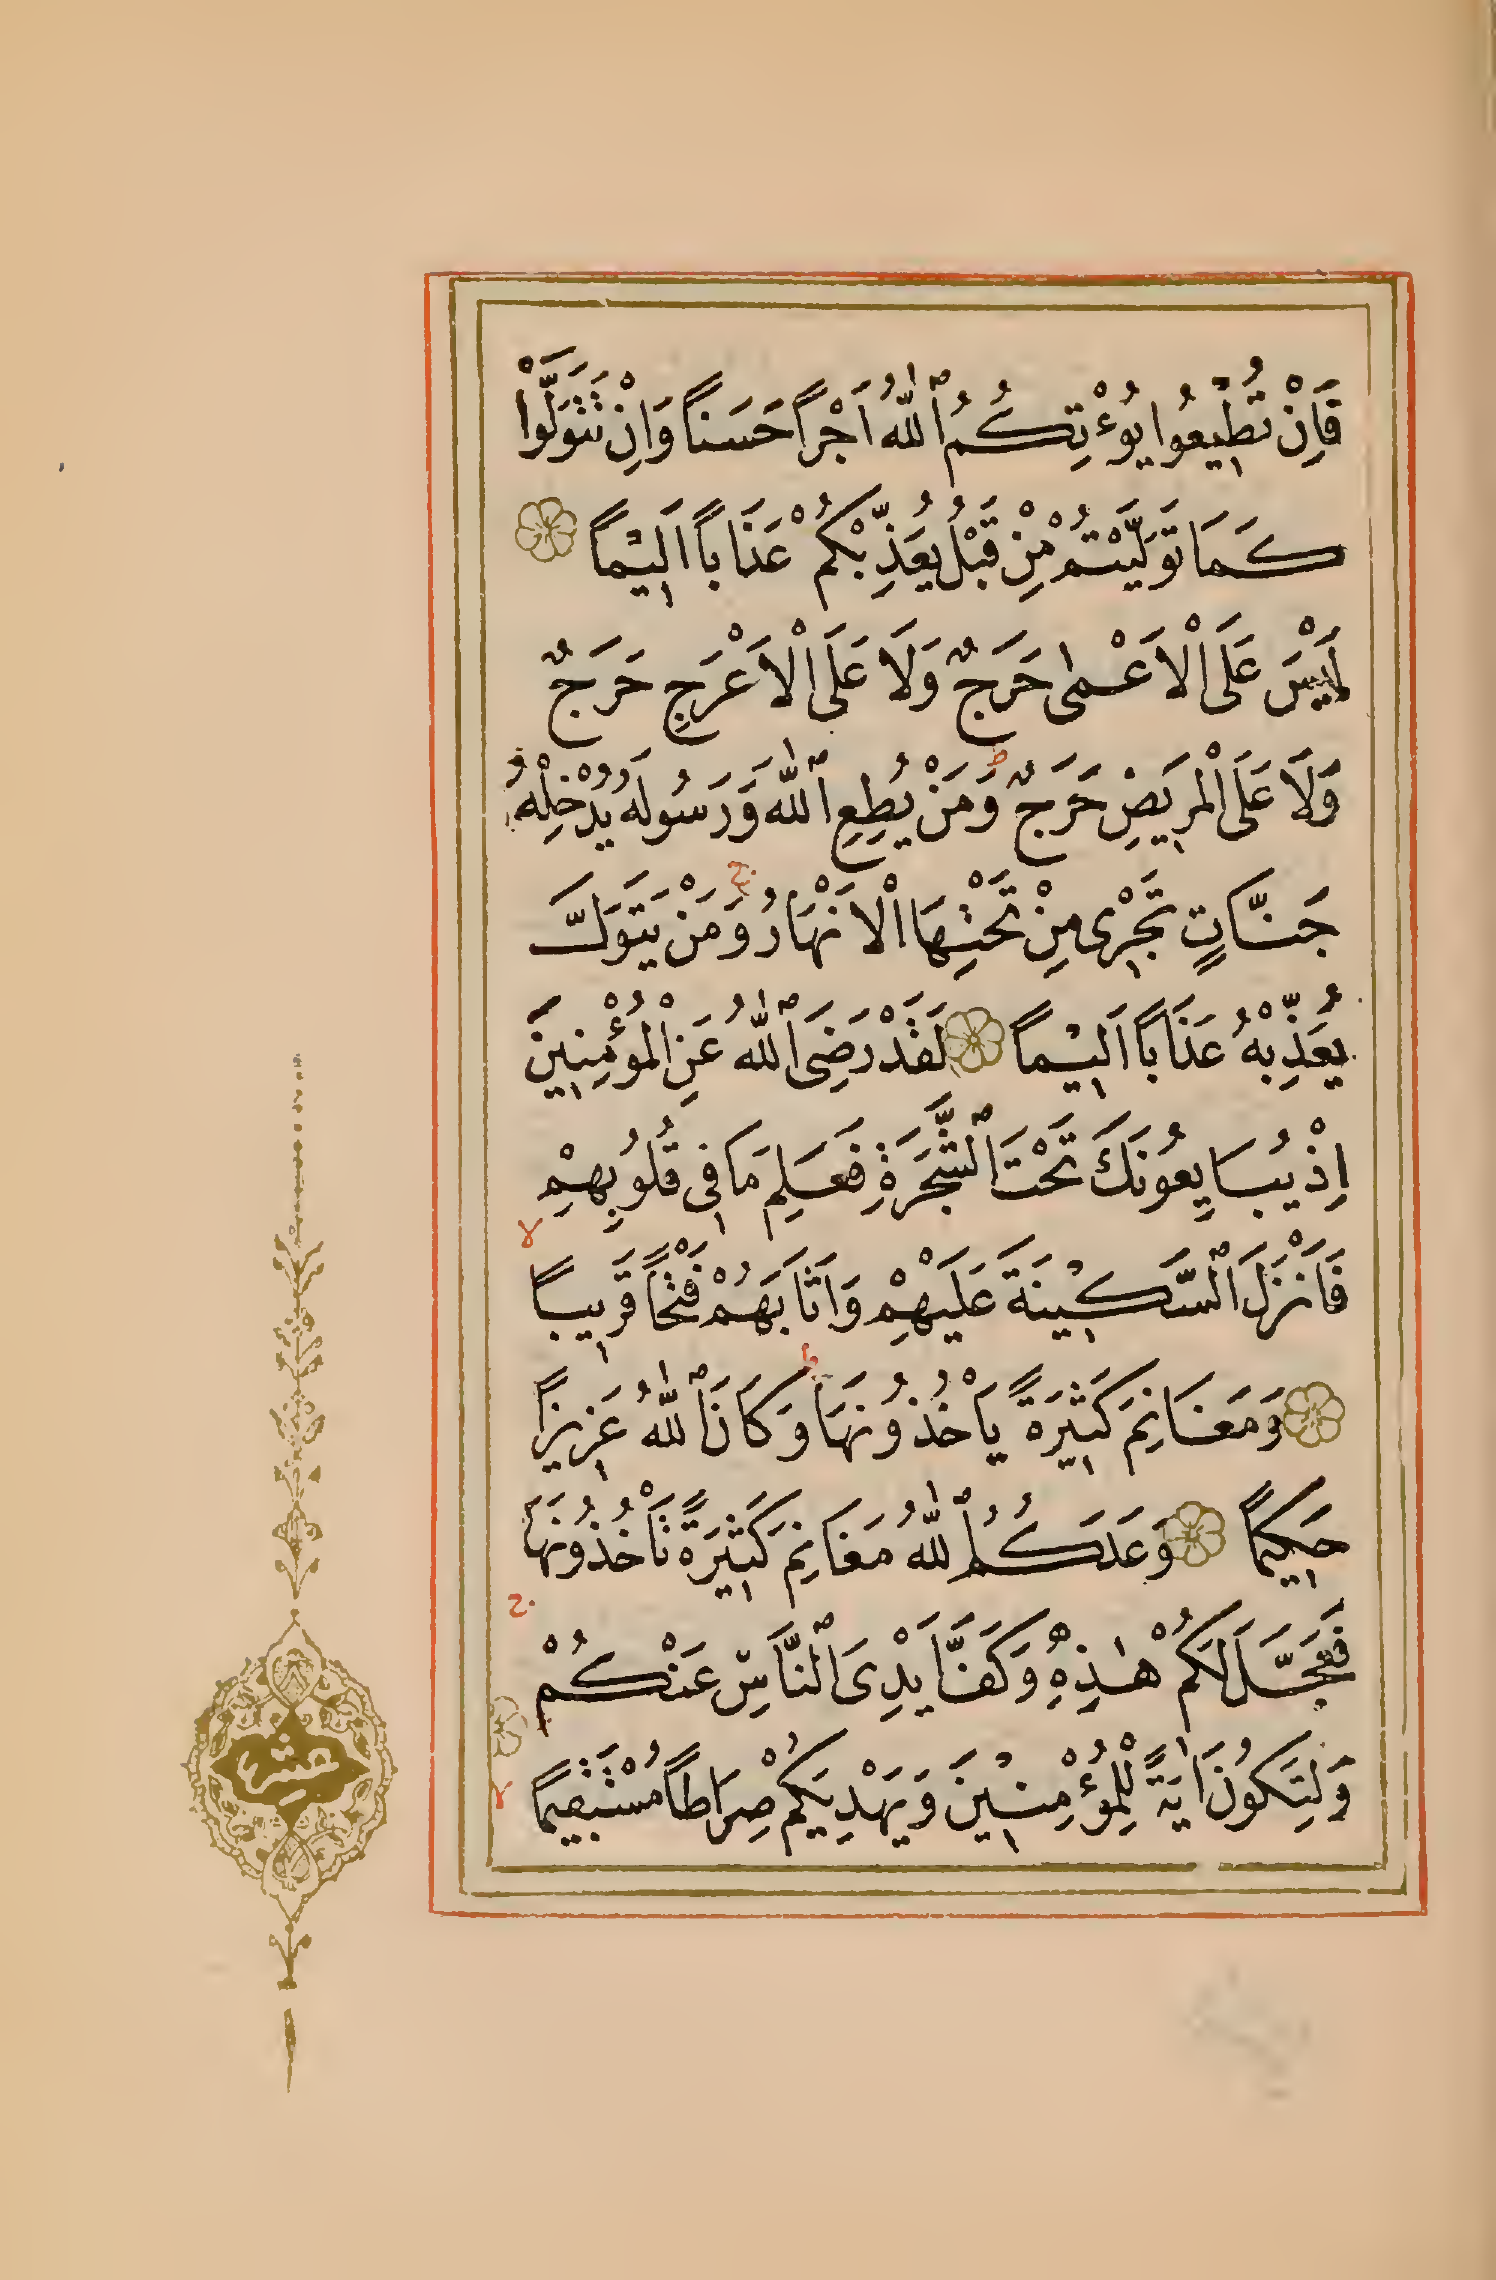 فَاِنْ تُطِيعُوا يُوءْتِكُمُ ٱللّٰهُ اَجْراً حَسَناً وَاِنْ تَتَوَلَّوْا
كَمَا تَوَلَّيْتُمْ مِنْ قَبْلُ يُعَذِّبْكُمْ عَذَاباً اَلِيْماً
لَيْسَ عَلَى اْلاَعْمٰى حَرَجٌ وَلَا عَلَى اْلاَعْرَجِ حَرَجٌ
وَلَا عَلَى الْمَرِيَضِ حَرَجٌ وَمَنْ يُطِعِ ٱللّٰهَ وَرَسُولَهُ يُدْخِلْهُ
جَنَّاتٍ تَجْرِى مِنْ تَحْتِهَا اْلاَنْهَارُ وَمَنْ يَتَوَلَّ
يُعَذِّبْهُ عَذَاباً اَلِيْماً لَقَدْ رَضِىَ ٱللّٰهُ عَنِ الْمُؤْمِنِينَ
اِذْ يُبَايِعُونَكَ تَحْتَ ٱلشَّجَرَةِ فَعَلِمَ مَا فِى قُلُوبِهِمْ
فَاَنْزَلَ ٱلسَّكِيْنَةَ عَلَيْهِمْ وَاَثَابَهُمْ فَتْحاً قَرِيباً
وَمَغَانِمَ كَثِيْرَةً يَاْخُذُونَهَا وَكَانَ ٱللّٰهُ عَزِيزاً
حَكِيماً وَعَدَكُمُ ٱللّٰهُ مَغَانِمَ كَثِيْرَةً تَاْخُذُونَهَا
فَعَجَّلَ لَكُمْ هٰذِهِ وَكَفَّ اَيْدِىَ ٱلنَّاسِ عَنْكُمْ
وَلِتَكُونَ اٰيَةً لِلْمُؤْمِنِيْنَ وَيَهْدِيَكُمْ صِرَاطاً مُسْتَقِيماً
عشر